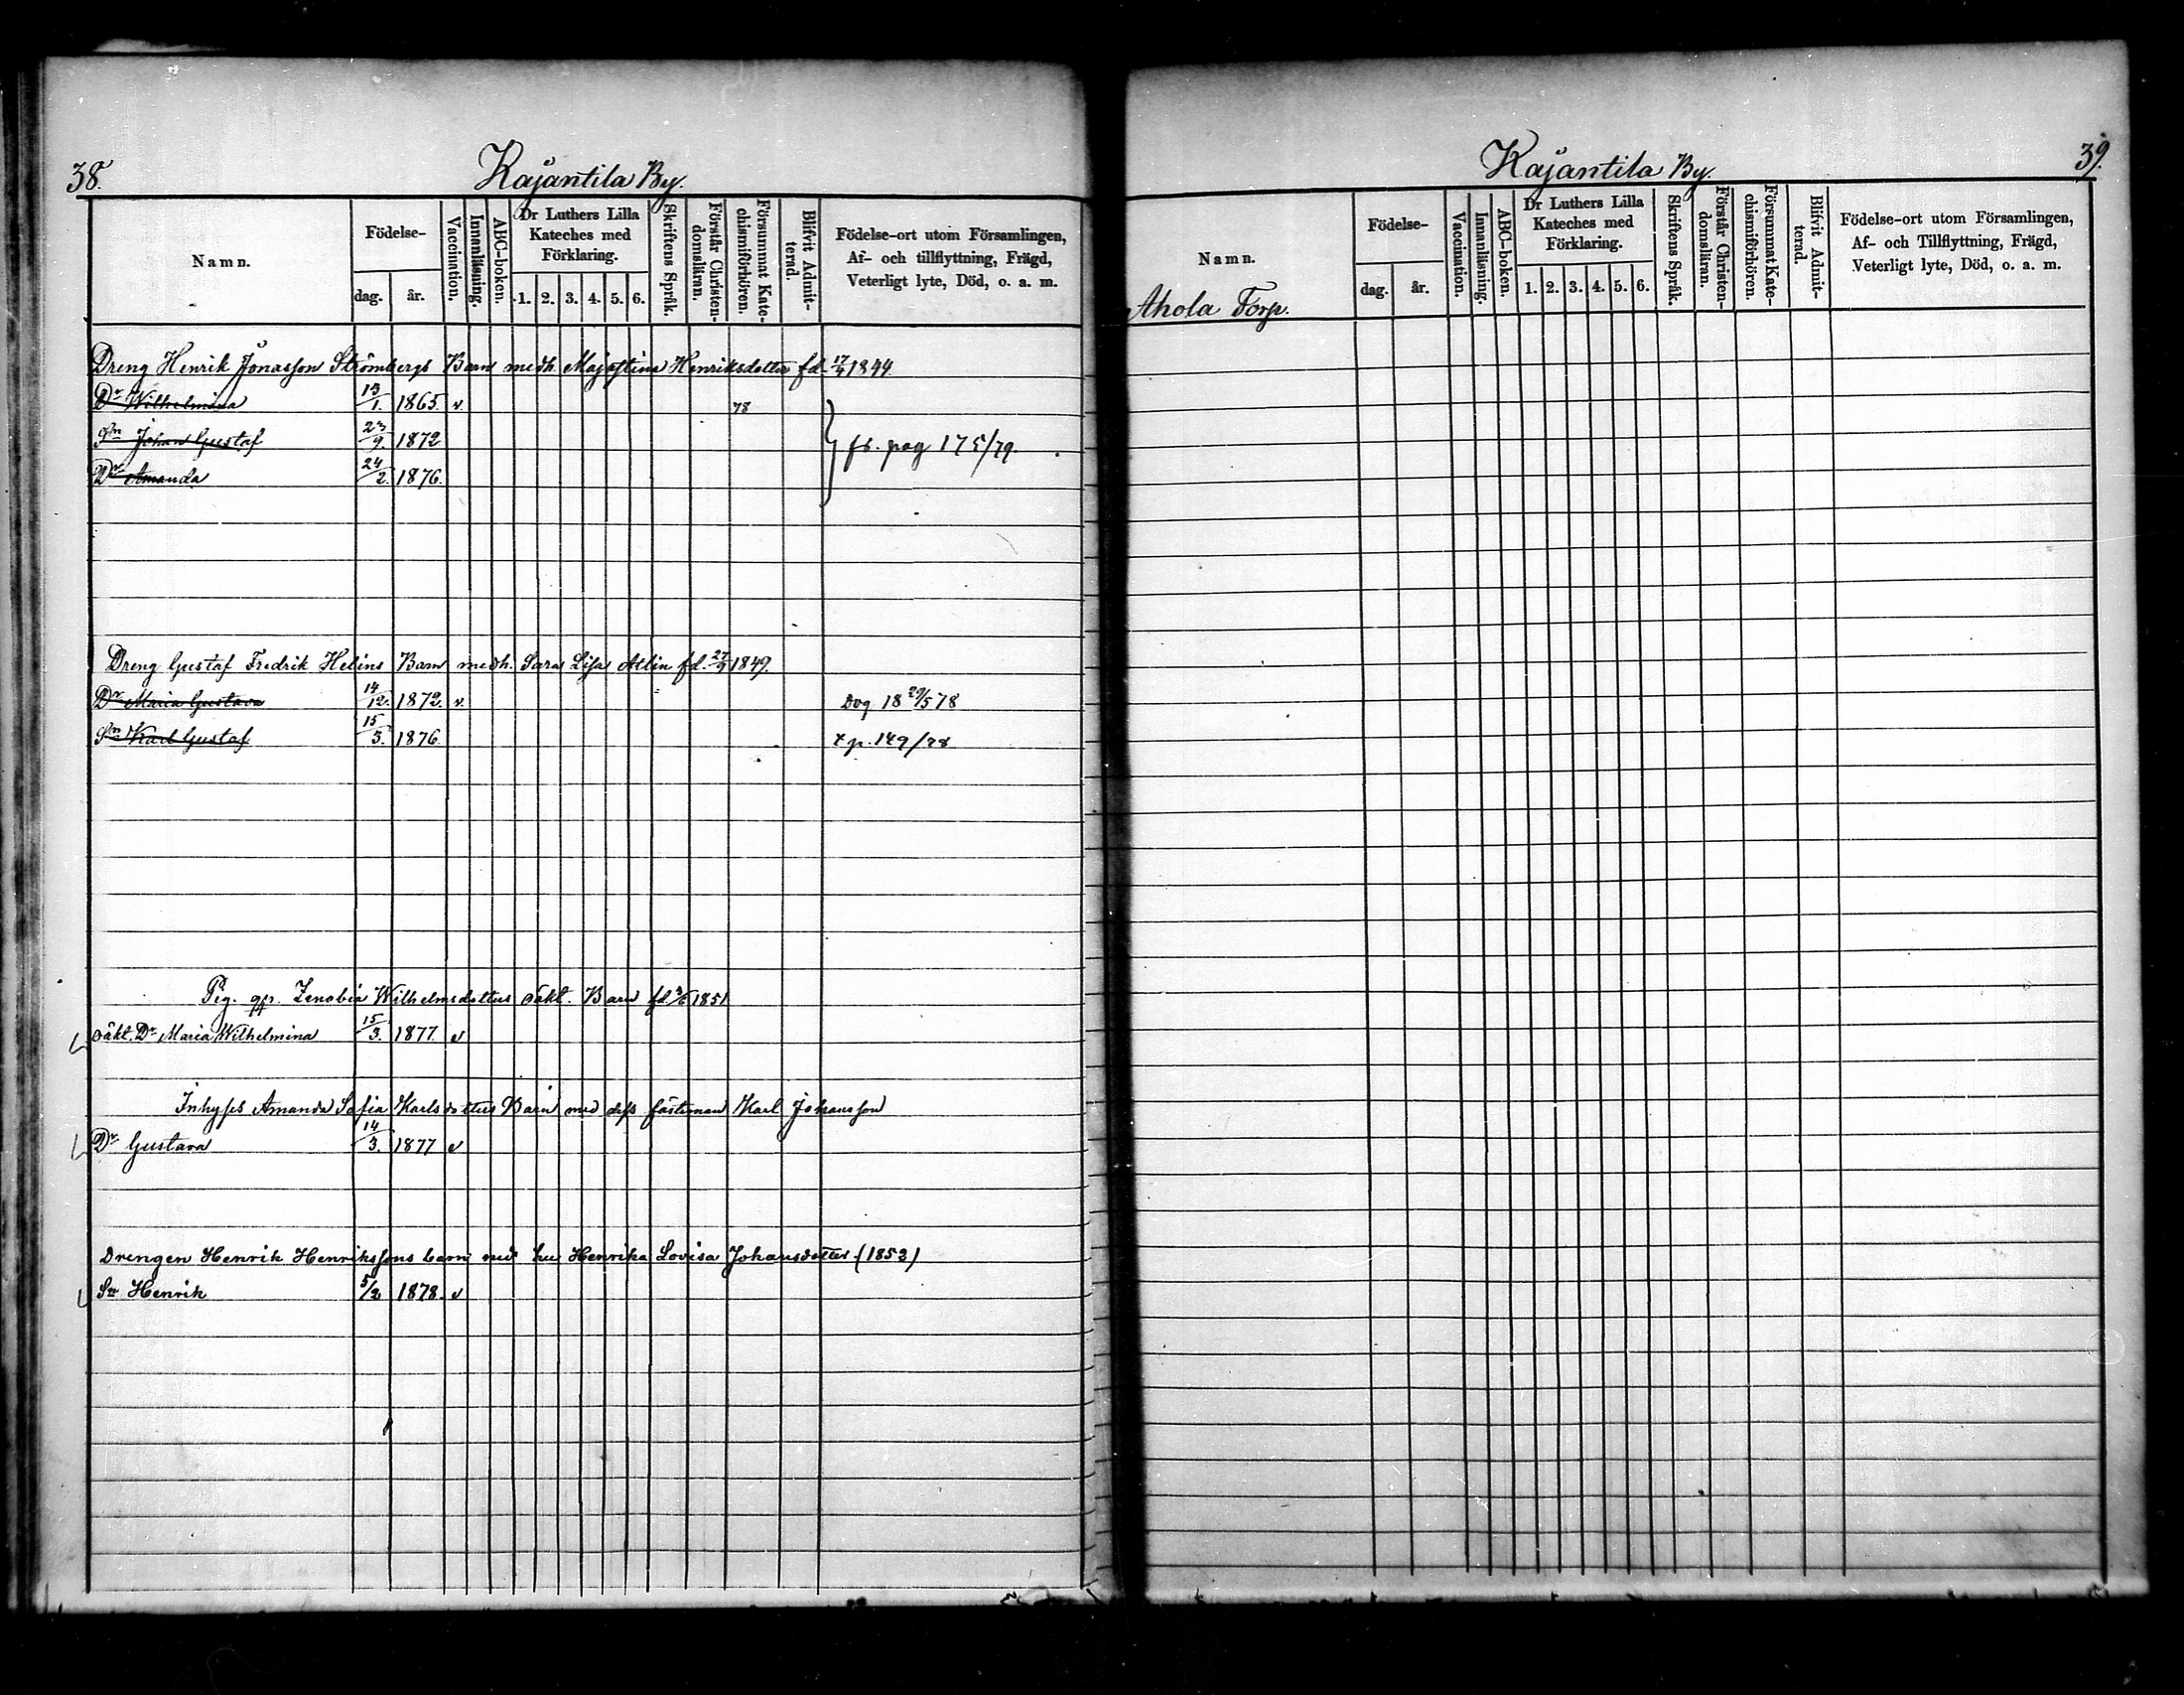 38.
Kajantila By.
Namn.
Födelse-
dag.
år.
Vaccination.
Innanläsning.
ABC-boken.
Dr Luthers Lilla
Kateches med
Förklaring.
1. 2. 3. 4. 5. 6.
Skriftens Språk.
Förstår Christen-
domsläran.
Försummat Kate-
chismiförhören.
Blifvit Admit-
terad.
Födelse-ort utom Församlingen,
Af- och tillflyttning, Frägd,
Veterligt lyte, Död, o. a. m.
Dreng Henrik Jonasson Strömbergs Barn medh. Majastina Henriksdotter fd. 1844
Dr Wilhelmina 13/1. 1865. v. 78
Sn Johan Gustaf 23/9. 1872
fl. pag 175/79.
Dr Amanda 24/2. 1876.
Dreng Gustaf Fredrik Helins Barn medh. Sara Lisa Atlin fd. 27/9 1849.
Dr Maria Gustava 14/12. 1872. v. Dog 18 29/5 78
Sn Karl Gustaf 15/5. 1876. x p. 149/78
Pig. Zenobia Wilhelmsdotters oäkt. Barn fd 1851
oäkt. Dr Maria Wilhelmina 15/3. 1877. v
Inhyses Amanda Sofia Karlsdotters Barn med dess fästeman Karl Johansson
Dr Gustava 14/3. 1877 v
Drengen Henrik Henrikssons barn med hu Henrika Lovisa Johansdotter (1853)
Sn Henrik 5/2 1878. v
39.
Kajantila By.
Namn.
Ahola Torp.
Födelse-
dag.
år.
Vaccination.
Innanläsning.
ABC-boken.
Dr Luthers Lilla
Kateches med
Förklaring.
1. 2. 3. 4. 5. 6.
Skriftens Språk.
Förstår Christen-
domsläran.
Försummat Kate-
chismiförhören.
Blifvit Admit-
terad.
Födelse-ort utom Församlingen,
Af- och Tillflyttning, Frägd,
Veterligt lyte, Död, o. a. m.